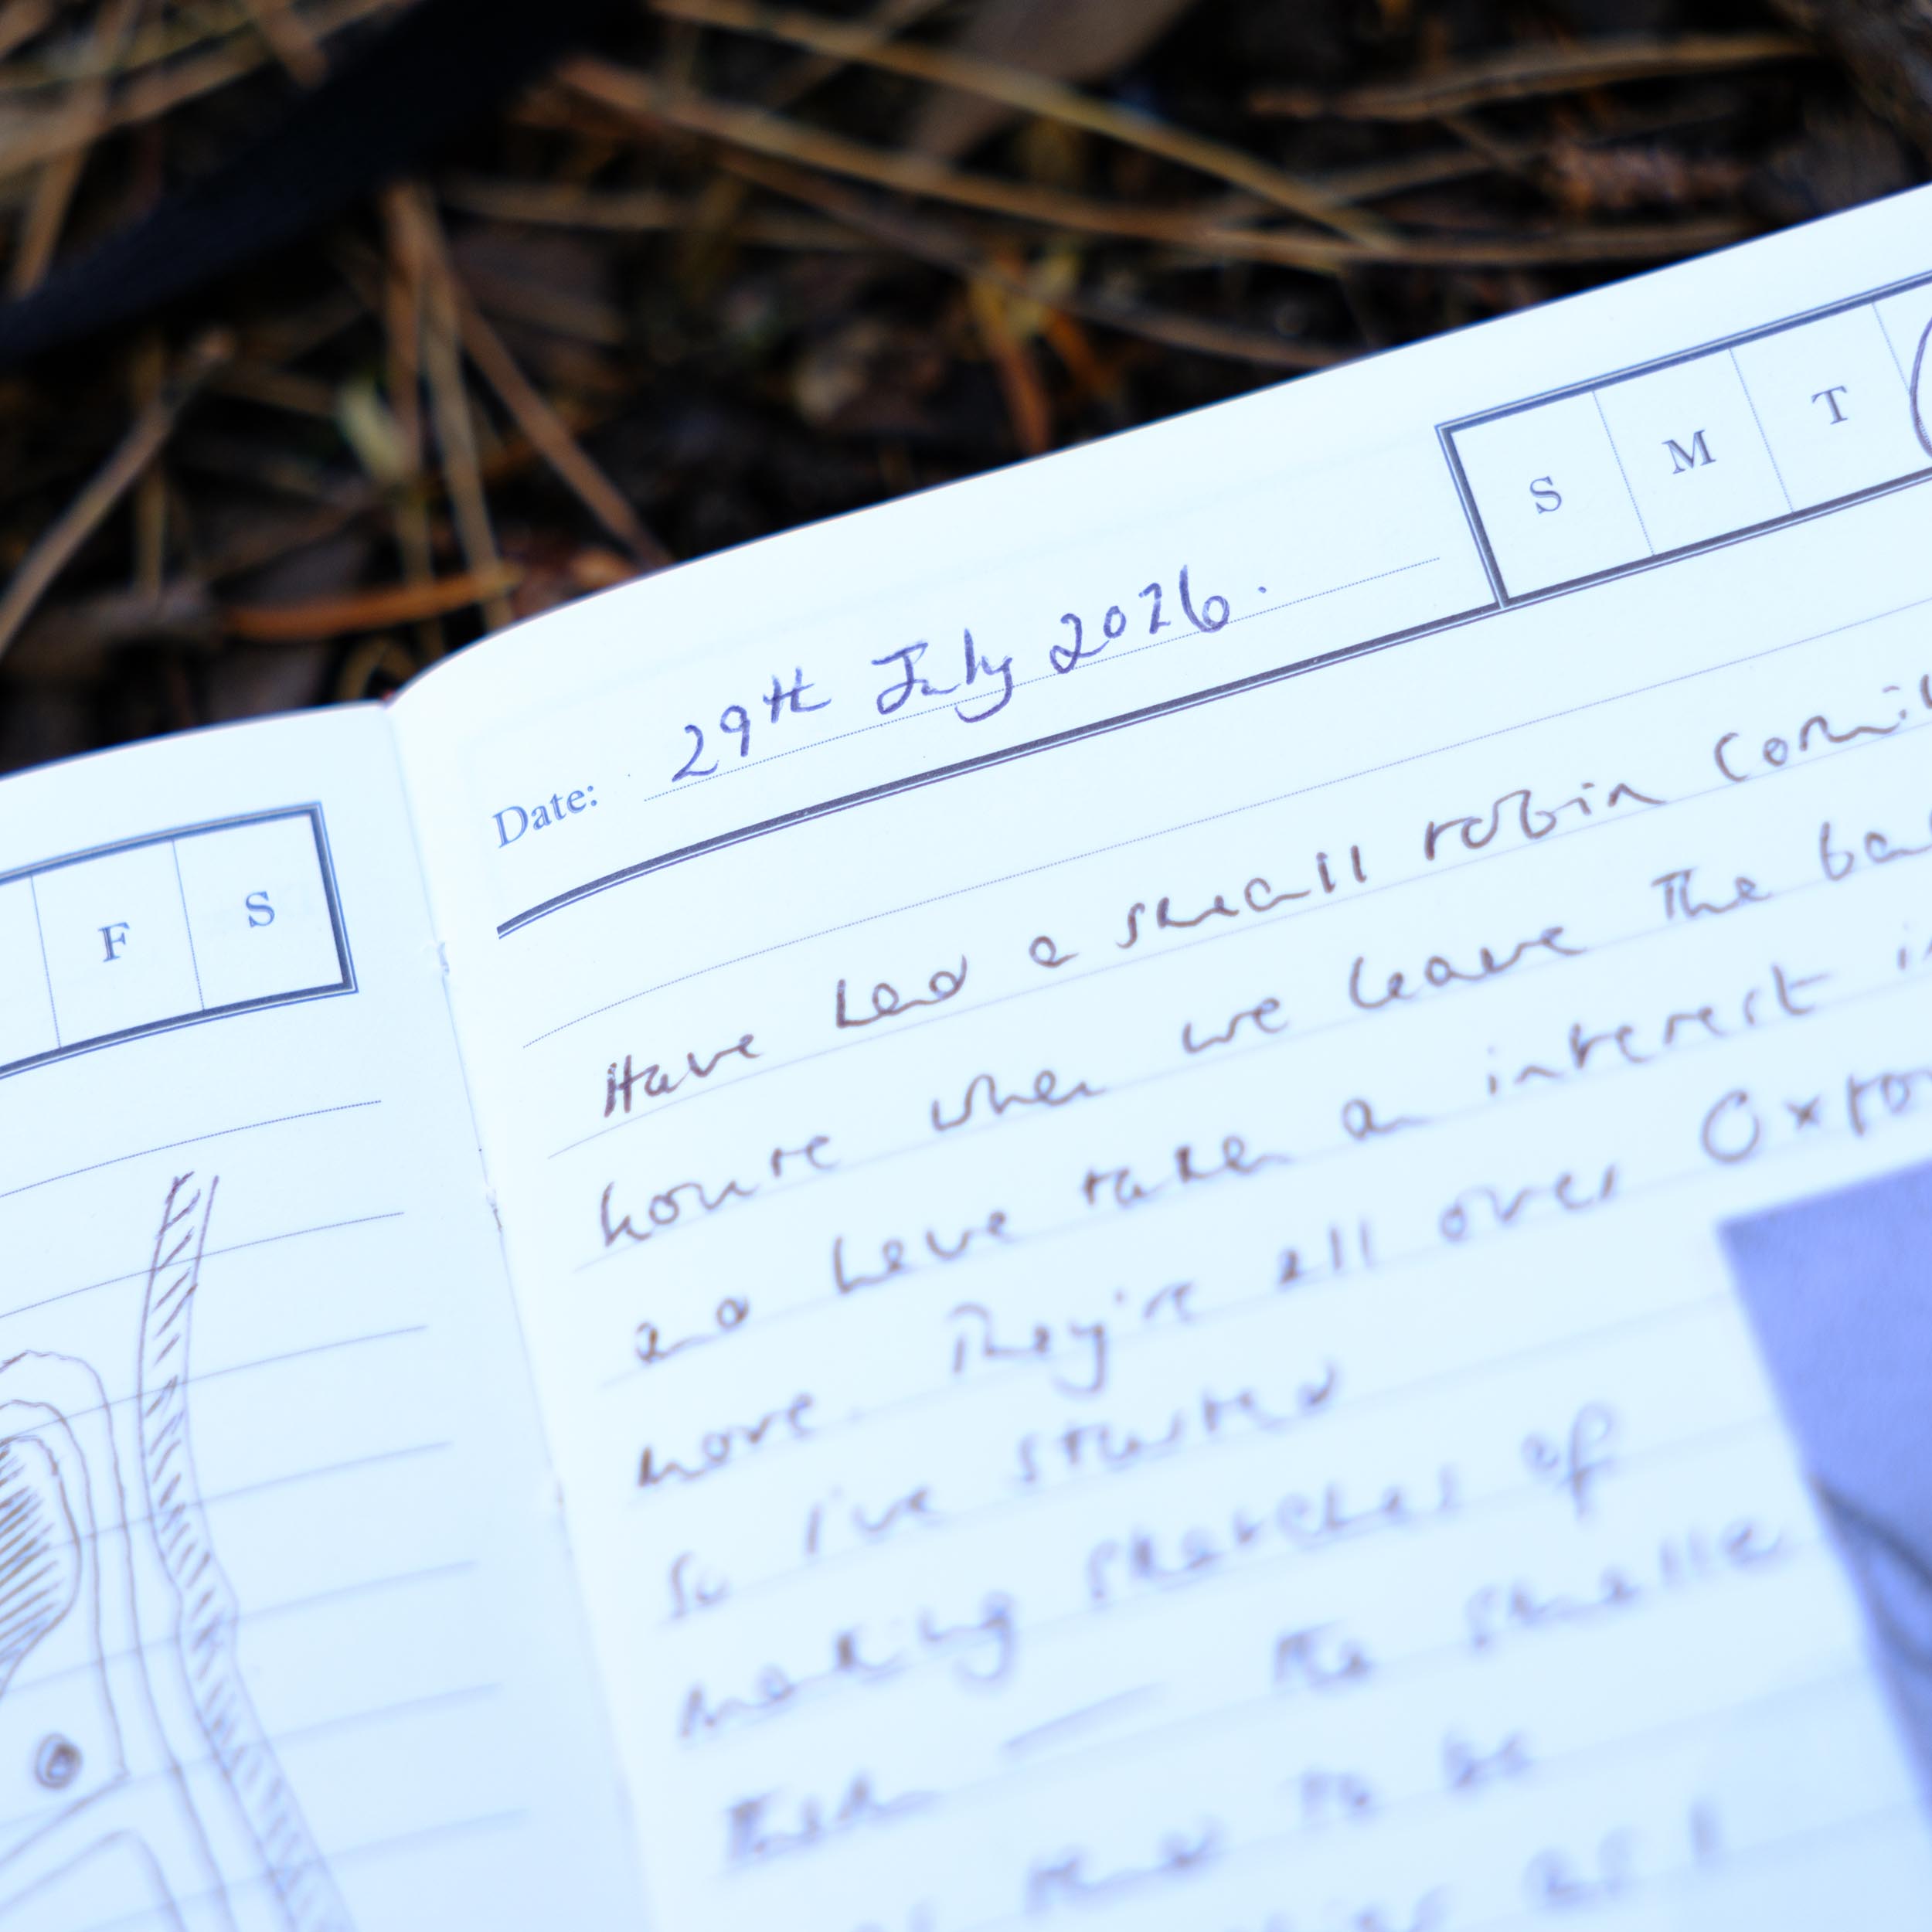 F S
Date: 29th July 2026.
S M T
Have had a small robin
house when we leave the
and have taken an interest
more. They're all over
So I've started
making sketches of
them — the smalle
tend to be
as I